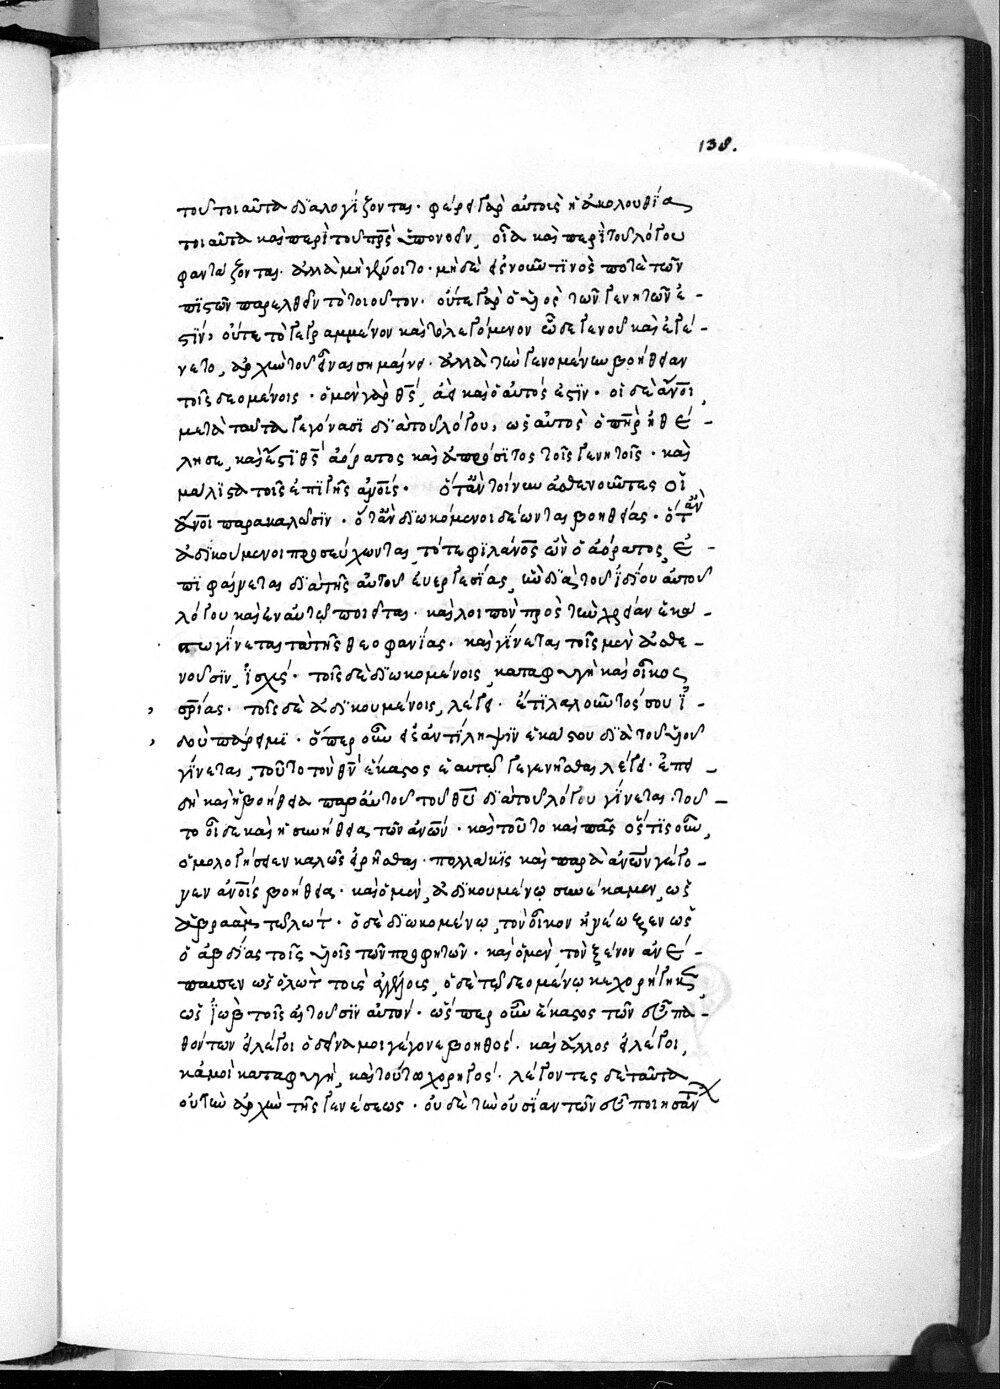 138.
τους τοιαῦτα διαλογίζονται. φέρει γὰρ αὐτοῖς ἡ ἀκολουθία
τοιαῦτα καὶ περὶ τοῦ πρς ἐπινοεῖν, οἷα καὶ περὶ τοῦ λόγου
φαντάζονται. ἀλλὰ μὴ γένοιτο. μὴ δὲ εἰς νοῦν τινός ποτὲ τῶν
πιστῶν παρελθεῖν τὸ τοιοῦτον. οὔτε γὰρ ὁ υἱος τῶν γενητῶν ἐ-
στιν, οὔτε τὸ γεγραμμένον καὶ τὸ λεγόμενον ὧδε γενοῦ καὶ ἐγέ-
νετο, ἀρχὴν τοῦ εἶναι σημαίνει. ἀλλὰ τὴν γενομένην βοήθειαν
τοῖς δεομένοις. ὁ μὲν γὰρ θς, ἀεὶ καὶ ὁ αὐτός ἐστιν. οἱ δὲ ἄνοι,
μετὰ ταῦτα γεγόνασι διὰ τοῦ λόγου, ὡς αὐτὸς ὁ πηρ ἠθέ-
λησε, καὶ ἔστι θς ἀόρατος καὶ ἀπρόσιτος τοῖς γενητοῖς. καὶ
μάλιστα τοῖς ἐπὶ γῆς ἀνοις. ὅταν τοίνυν ἀσθενοῦντες οἱ
ἄνοι παρακαλῶσιν. ὅταν διωκόμενοι δέωνται βοηθείας. ὅταν
ἀδικούμενοι προσεύχωνται, τότε φιλάνος ὢν ὁ ἀόρατος, ἐ-
πιφαίνεται διὰ τῆς αὐτοῦ ἐυεργεσίας, ἣν διὰ τοῦ ἰδίου αὐτοῦ
λόγου καὶ ἐν αὐτῷ ποιεῖται. καὶ λοιπὸν πρὸς τὴν χρείαν ἑκά-
στῳ γίνεται τὰ τῆς θεοφανίας. καὶ γίνεται τοῖς μὲν ἀσθε-
νοῦσιν, ἰσχύς. τοῖς δὲ διωκομένοις, καταφυγὴ καὶ οἶκος
σρίας. τοῖς δὲ ἀδικουμένοις, λέγει. ἔτι λαλοῦντός σου ἰ-
δοὺ πάρειμι. ὅπερ οὖν εἰς ἀντίληψιν ἑκάστου διὰ τοῦ υἱοῦ
γίνεται, τοῦτο τὸν θν ἕκαστος ἑαυτῷ γεγενῆσθαι λέγει. ἐπει-
δὴ καὶ ἡ βοήθεια παρ' αὐτοῦ τοῦ θυ διὰ τοῦ λόγου γίνεται. τοῦ-
το οἶδε καὶ ἡ συνήθεια τῶν ἀνων. καὶ τοῦτο καὶ πᾶς ὅστις οὖν,
ὁμολογήσειεν καλῶς εἰρῆσθαι. πολλάκις καὶ παρὰ ἀνων γέγο-
νεν ἀνοις βοήθεια. καὶ ὁ μὲν, ἀδικουμένῳ συνέκαμεν, ὡς
ἀβραὰμ τῷ λώτ. ὁ δὲ διωκομένῳ, τὸν οἶκον ἠνέωξεν ὡς
ὁ ἀβδίας τοῖς υἱοῖς τῶν προφητῶν. καὶ ὁ μὲν, τὸν ξένον ἀνέ-
παυσεν ὡς ὁ λὼτ τοὺς ἀγγέλους, ὁ δὲ τῷ δεομένῳ κεχορήγηκεν,
ὡς ἰὼβ τοῖς αἰτοῦσιν αὐτόν. ὥσπερ οὖν ἕκαστος τῶν εὖ πα-
θόντων εἰ λέγοι ὁ δεῖνα μοι γέγονε βοηθός. καὶ ἄλλος εἰ λέγοι,
κἀμοὶ καταφυγὴ, καὶ τούτῳ χορηγός. λέγοντες δὲ ταῦτα
οὐ τὴν ἀρχὴν τῆς γενέσεως. οὐδὲ τὴν οὐσίαν τῶν εὖ ποιησάν